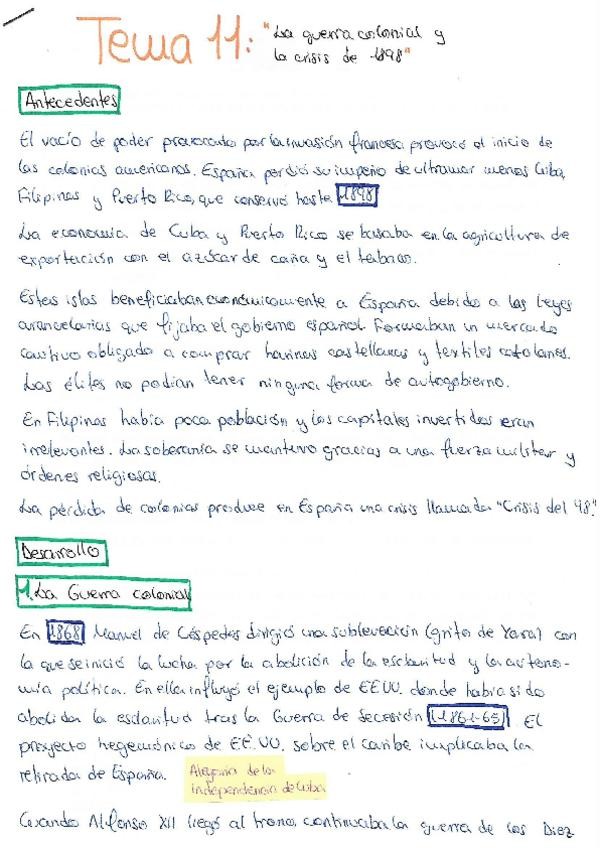 Tema 11: "La guerra colonial y
la crisis de 1898"
Antecedentes
El vacío de poder provocado por la invasión francesa provocó el inicio de
las colonias americanas. España perdió su imperio de ultramar menos Cuba,
Filipinas y Puerto Rico, que conservó hasta 1898
La economía de Cuba y Puerto Rico se basaba en la agricultura de
exportación con el azúcar de caña y el tabaco.
Estas islas beneficiaban económicamente a España debido a las leyes
arancelarias que fijaba el gobierno español. Formaban un mercado
cautivo obligado a comprar harinas castellanas y textiles catalanes.
Las élites no podían tener ninguna forma de autogobierno.
En Filipinas había poca población y los capitales invertidos eran
irrelevantes. La soberanía se mantuvo gracias a una fuerza militar y
órdenes religiosas.
La pérdida de colonias produce en España una crisis llamada "Crisis del 98".
Desarrollo
1. La Guerra colonial
En 1868 Manuel de Céspedes dirigió una sublevación (grito de Yara) con
la que se inició la lucha por la abolición de la esclavitud y la autono-
mía política. En ella influyó el ejemplo de EEUU. donde había sido
abolida la esclavitud tras la Guerra de Secesión (1861-65) El
proyecto hegemónico de EE.UU. sobre el caribe implicaba la
retirada de España.
Alegoría de la
independencia de Cuba
Cuando Alfonso XII llegó al trono, continuaba la guerra de los Diez